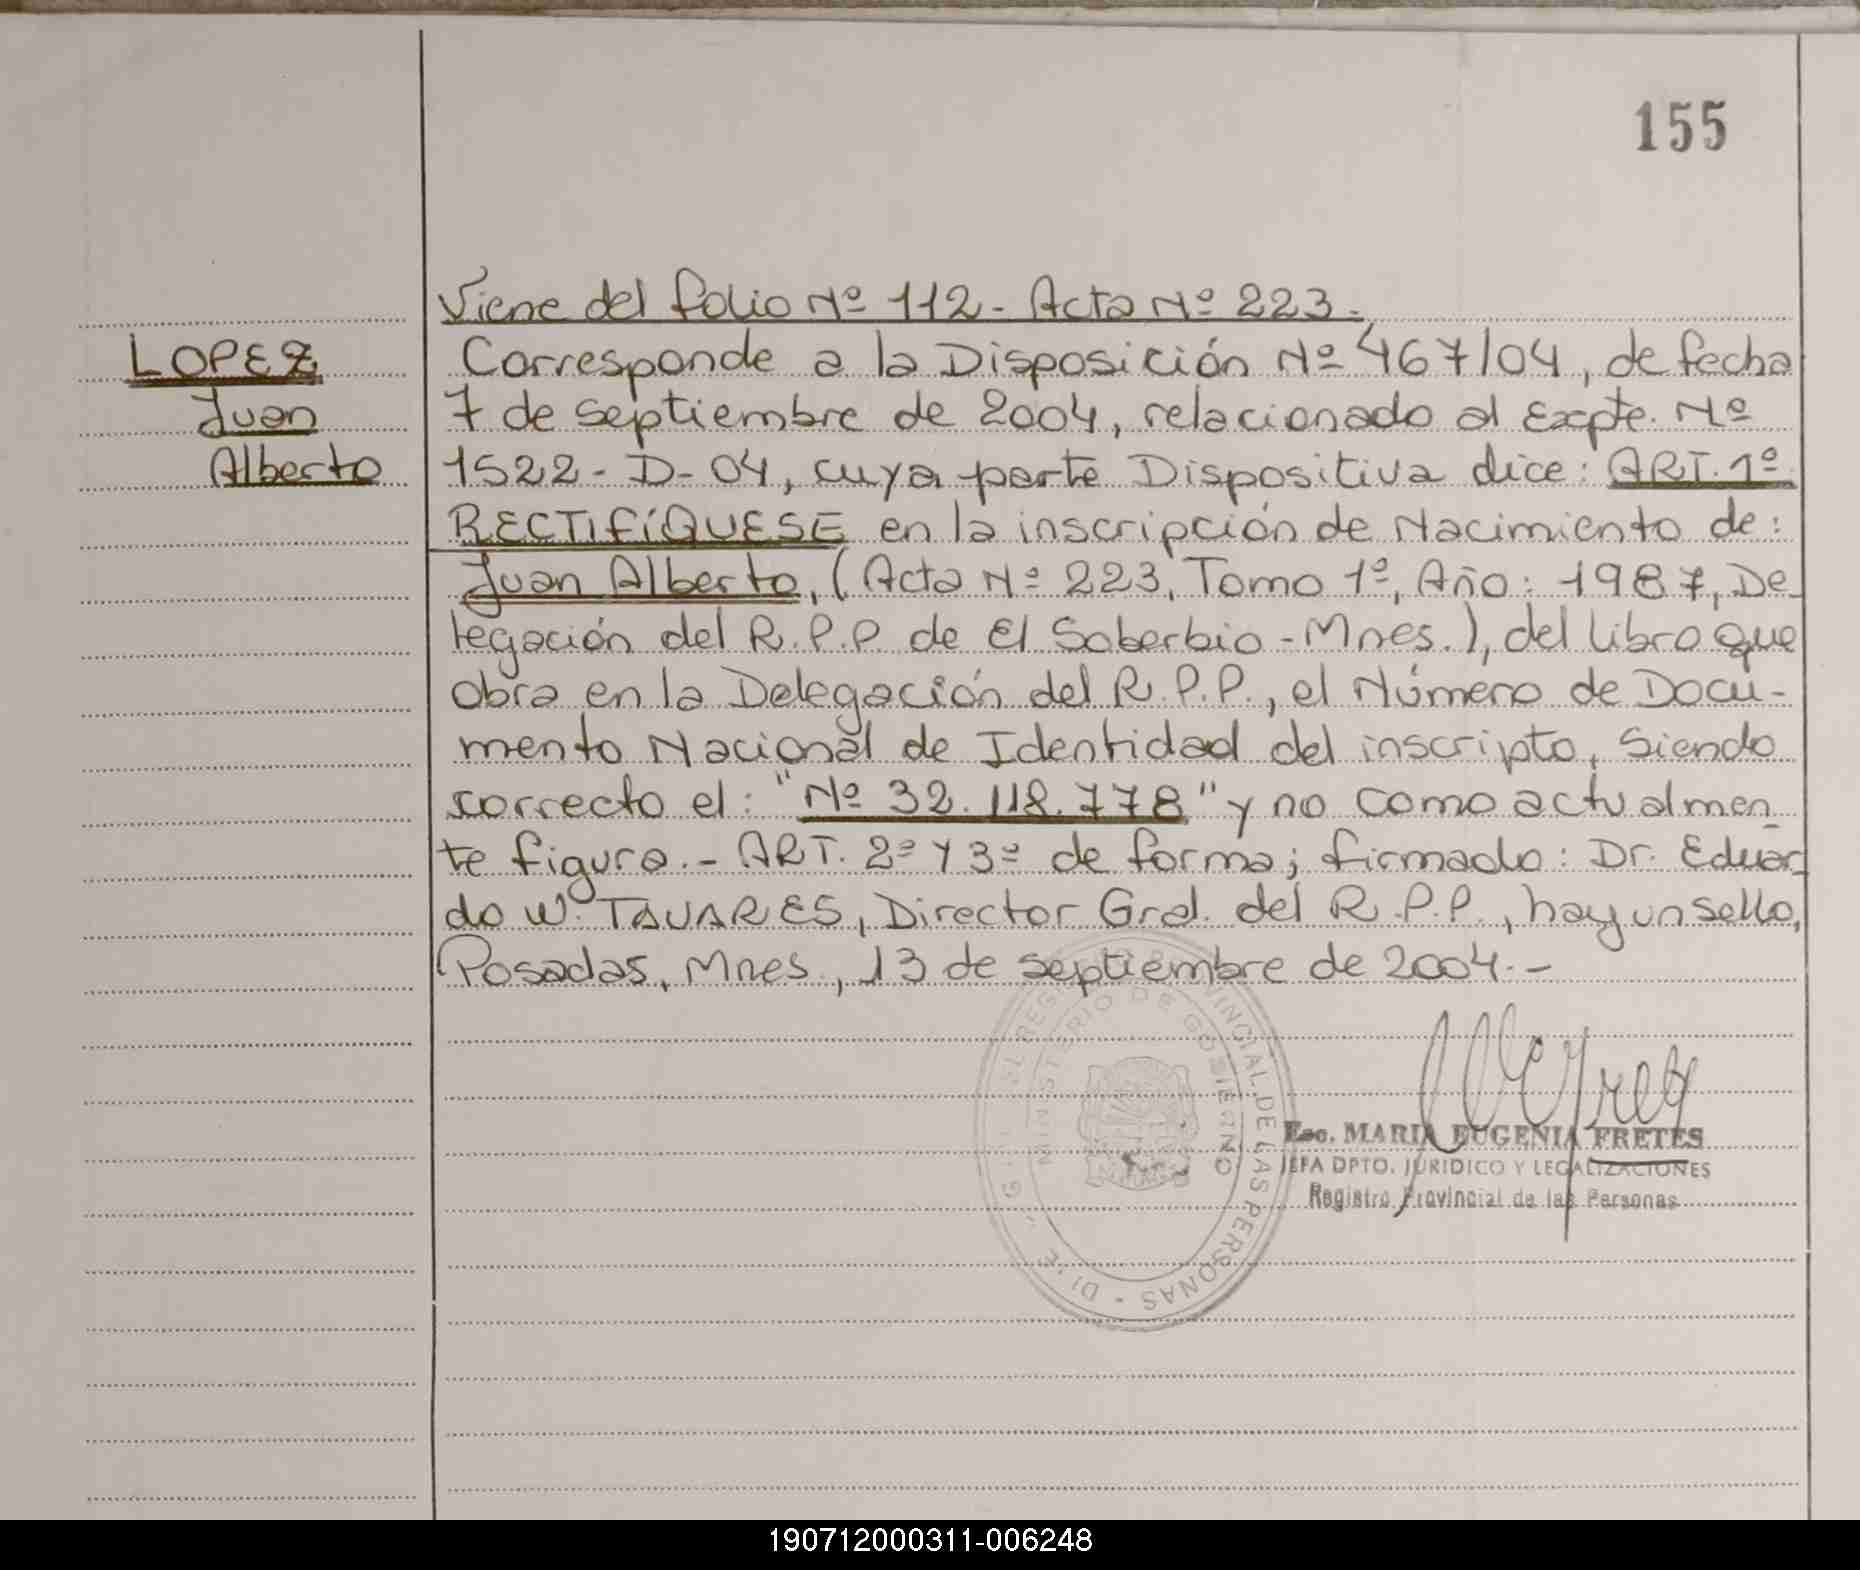 155
Viene del folio Nº 112 - Acta Nº 223.-
LOPEZ
Juan
Alberto
Corresponde a la Disposición Nº 467/04, de fecha
7 de septiembre de 2004, relacionado al Expte. Nº
1522 - D - 04, cuya parte Dispositiva dice: ART. 1º
RECTIFÍQUESE en la inscripción de Nacimiento de:
Juan Alberto, (Acta Nº 223, Tomo 1º, Año: 1987, De-
legación del R.P.P. de El Soberbio - Mnes.), del libro que
obra en la Delegación del R.P.P., el Número de Docu-
mento Nacional de Identidad del inscripto, siendo
correcto el: "Nº 32.118.778" y no como actualmen-
te figura.- ART. 2º y 3º de forma; firmado: Dr. Eduar-
do W. TAVARES, Director Gral. del R.P.P., hay un sello,
Posadas, Mnes., 13 de septiembre de 2004.-
PROVINCIAL DE LAS PERSONAS
MINISTERIO DE GOBIERNO
Esc. MARIA EUGENIA FRETES
JEFA DPTO. JURIDICO Y LEGALIZACIONES
Registro Provincial de las Personas
190712000311-006248